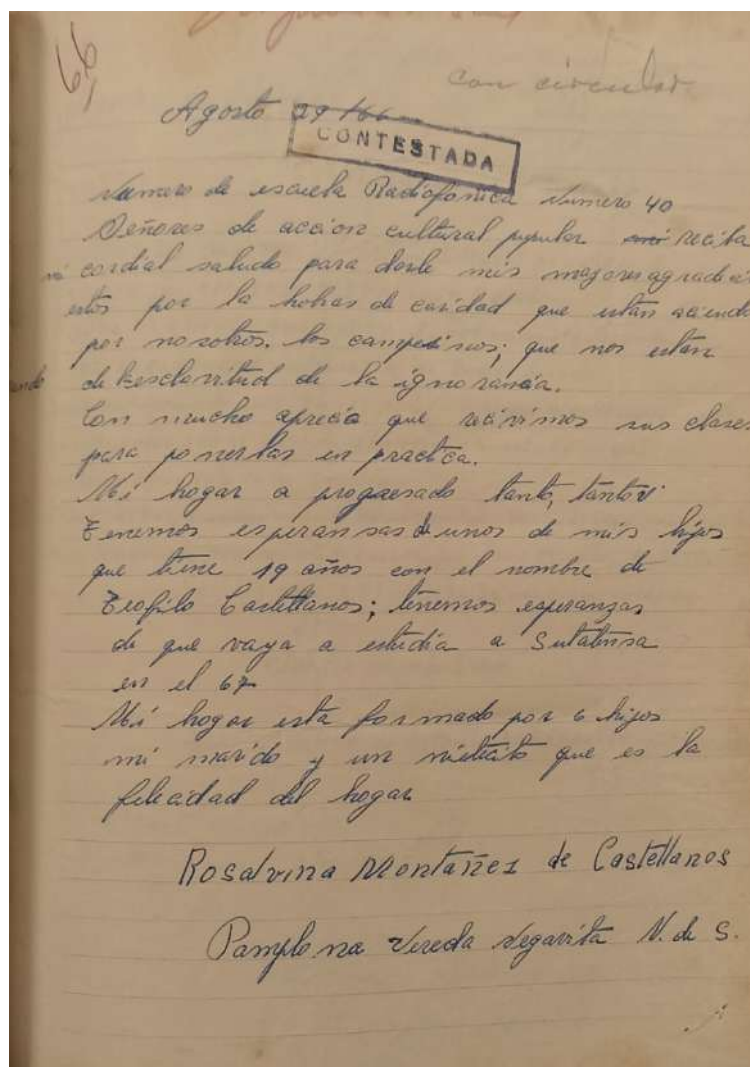 66
con circular
Agosto 29/66
CONTESTADA
Numero de escuela Radiofonica Numero 40
Señores de accion cultural popular reciba
mi cordial saludo para darle mis mayores agradeci
entos por la hobras de caridad que estan aciendo
por nosotros. los campesinos; que nos estan
ando de la esclavitud de la ignorancia.
Con mucho aprecio que recivimos sus clases
para ponerlas en practica.
Mi hogar a progresado tanto, tanto
Tenemos esperansas de unos de mis hijos
que tiene 19 años con el nombre de
Teofilo Castellanos; tenemos esperanzas
de que vaya a estudia a Sutatensa
en el 67
Mi hogar esta formado por 6 hijos
mi marido y un nietecito que es la
felicidad del hogar
Rosalvina Montañez de Castellanos
Pamplona Vereda Negavita N. de S.